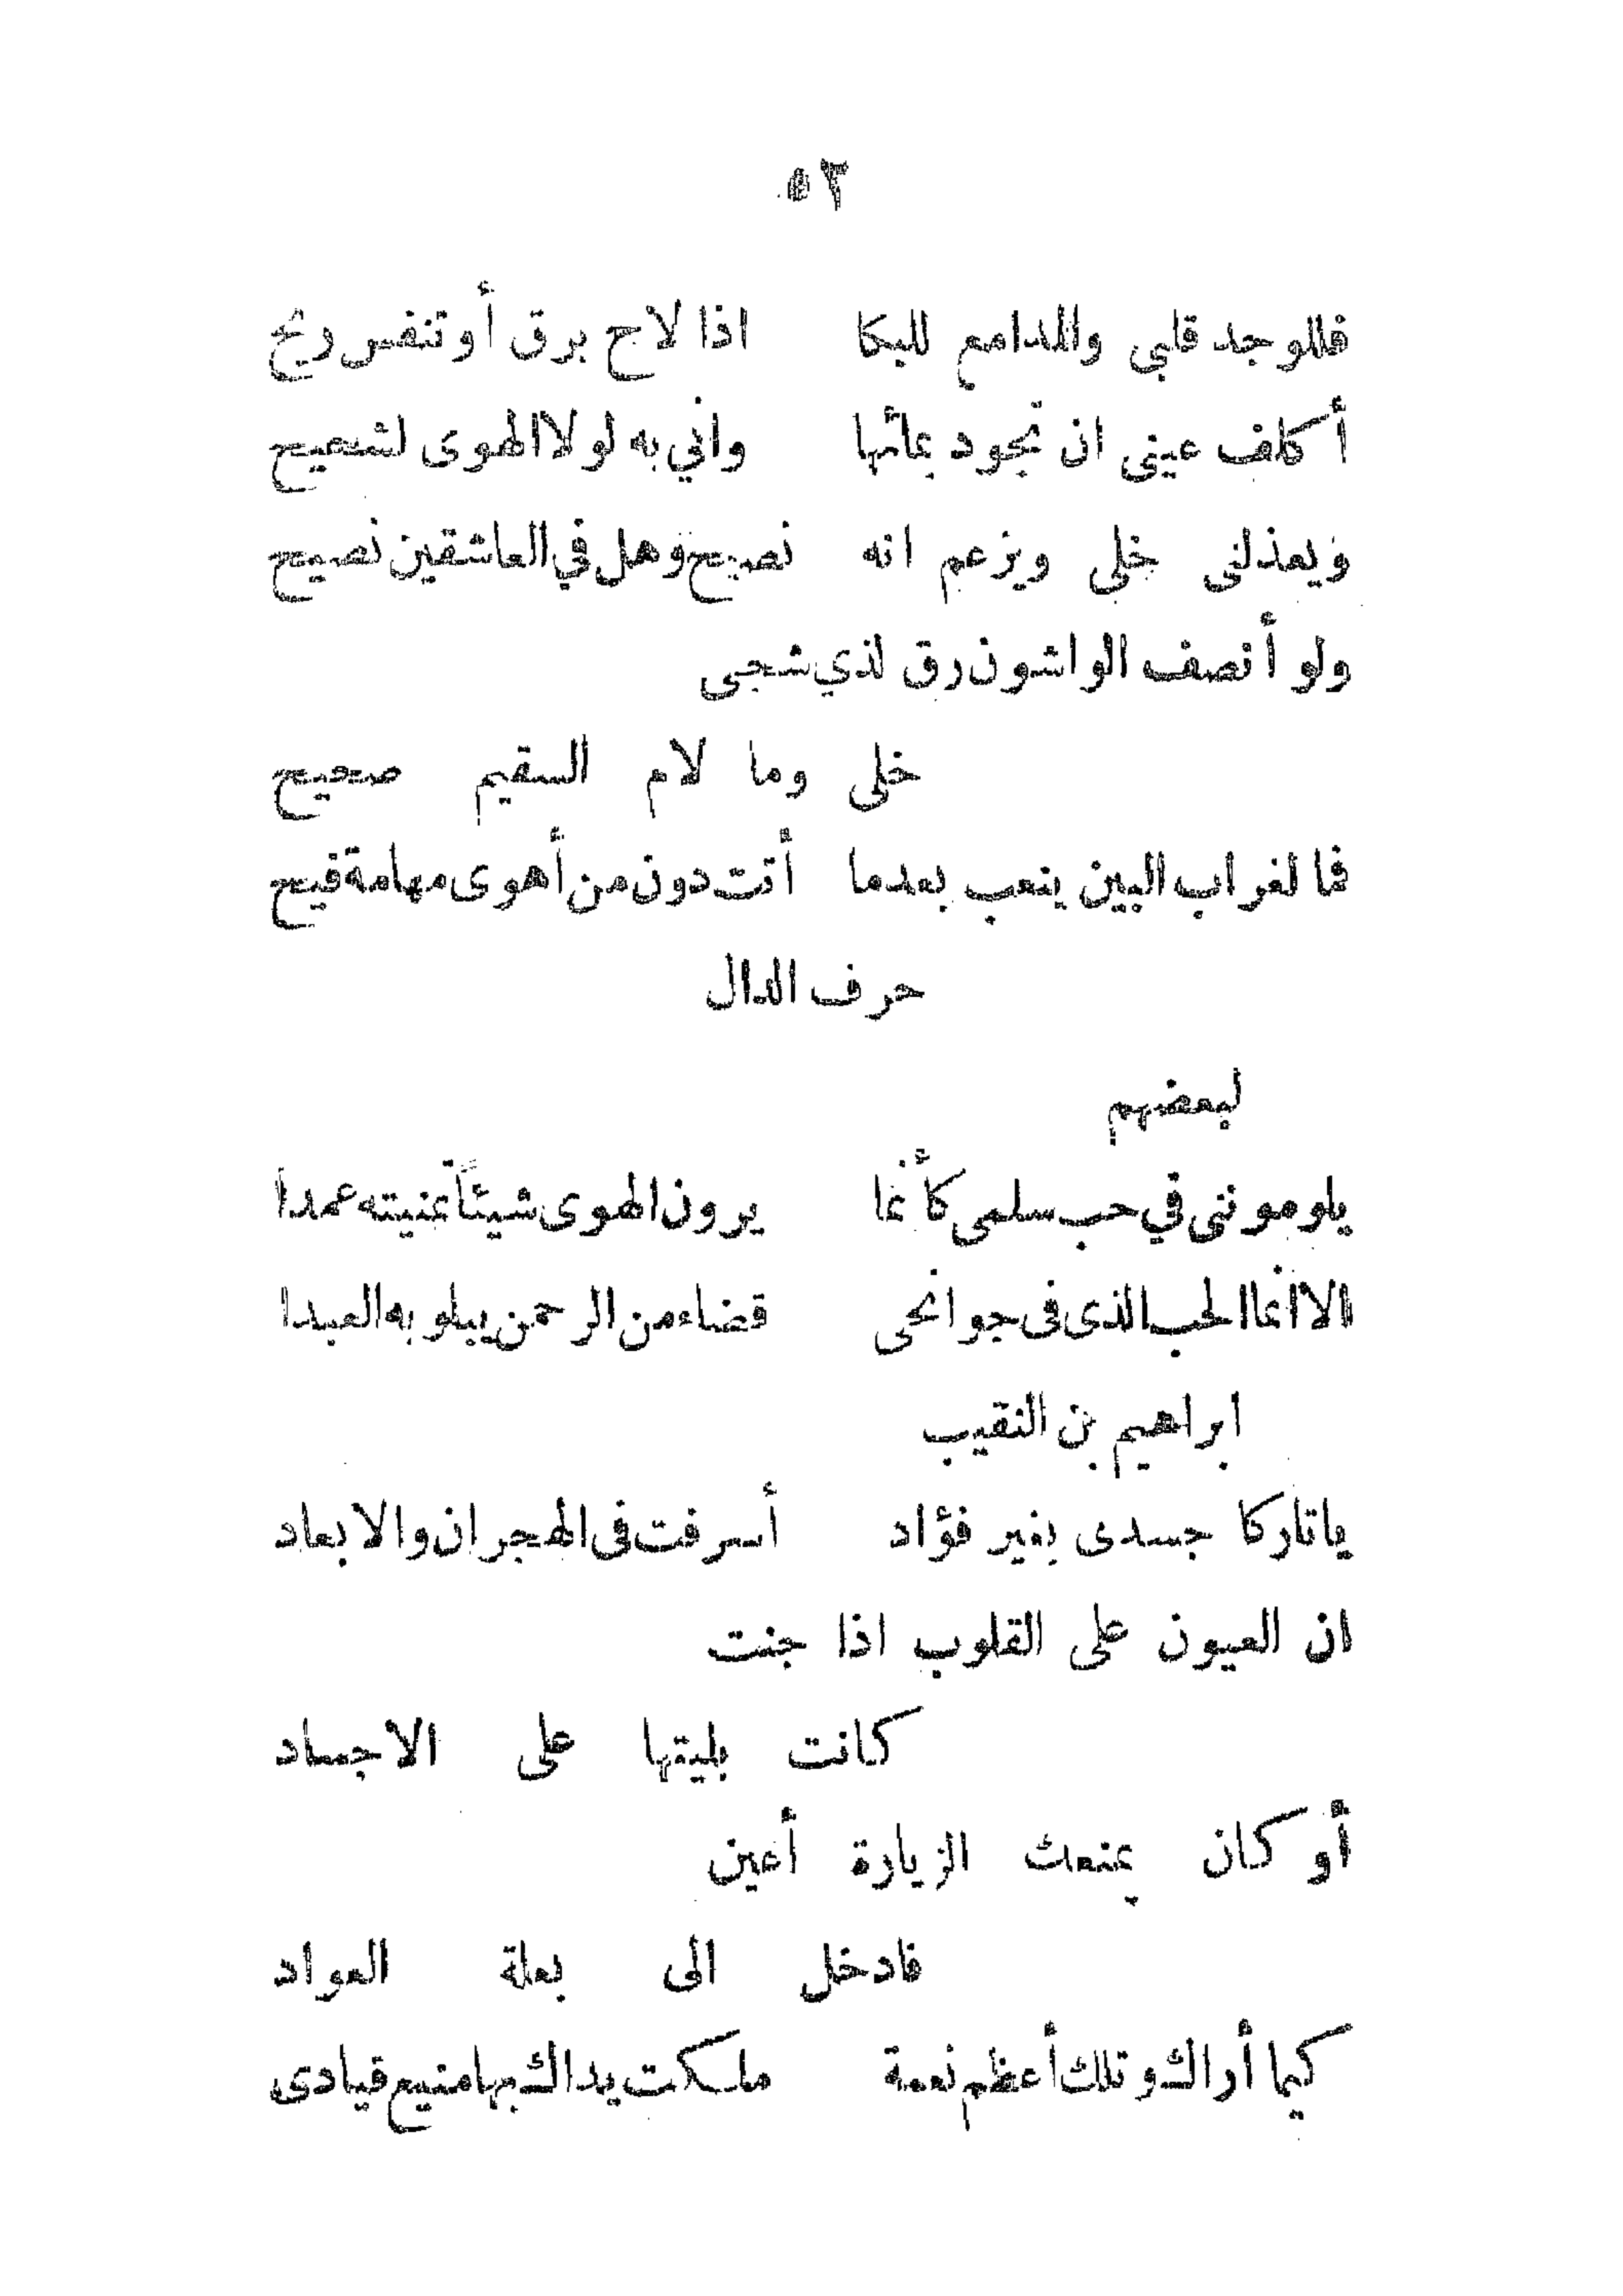 ٥٢
فللوجد قلبى والمدامع للبكا اذا لاح برق أو تنفس ريح
أكلف عينى ان تجود بمائها واني به لولا الهوى لشحيح
ويعذلنى خلى ويزعم انه نصيح وهل في العاشقين نصيح
ولو أنصف الواشون رق لذي شجى
خلى وما لام السقيم صحيح
فما لغراب البين ينعب بعدما أتت دون من أهوى مهامة فيح
حرف الدال
لبعضهم
يلوموننى في حب سلمى كأنما يرون الهوى شيئاً تمنيته عمدا
الا انما الحب الذى فى جوانحى قضاء من الرحمن يبلو به العبدا
ابراهيم بن النقيب
ياتاركا جسدى بغير فؤاد أسرفت فى الهجران والابعاد
ان العيون على القلوب اذا جنت
كانت بليتها على الاجساد
أو كان يمنعك الزيارة أعين
فادخل الى بعلة العواد
كيما أراك وتلك أعظم نعمة ملكت يداك بها منيع قيادى